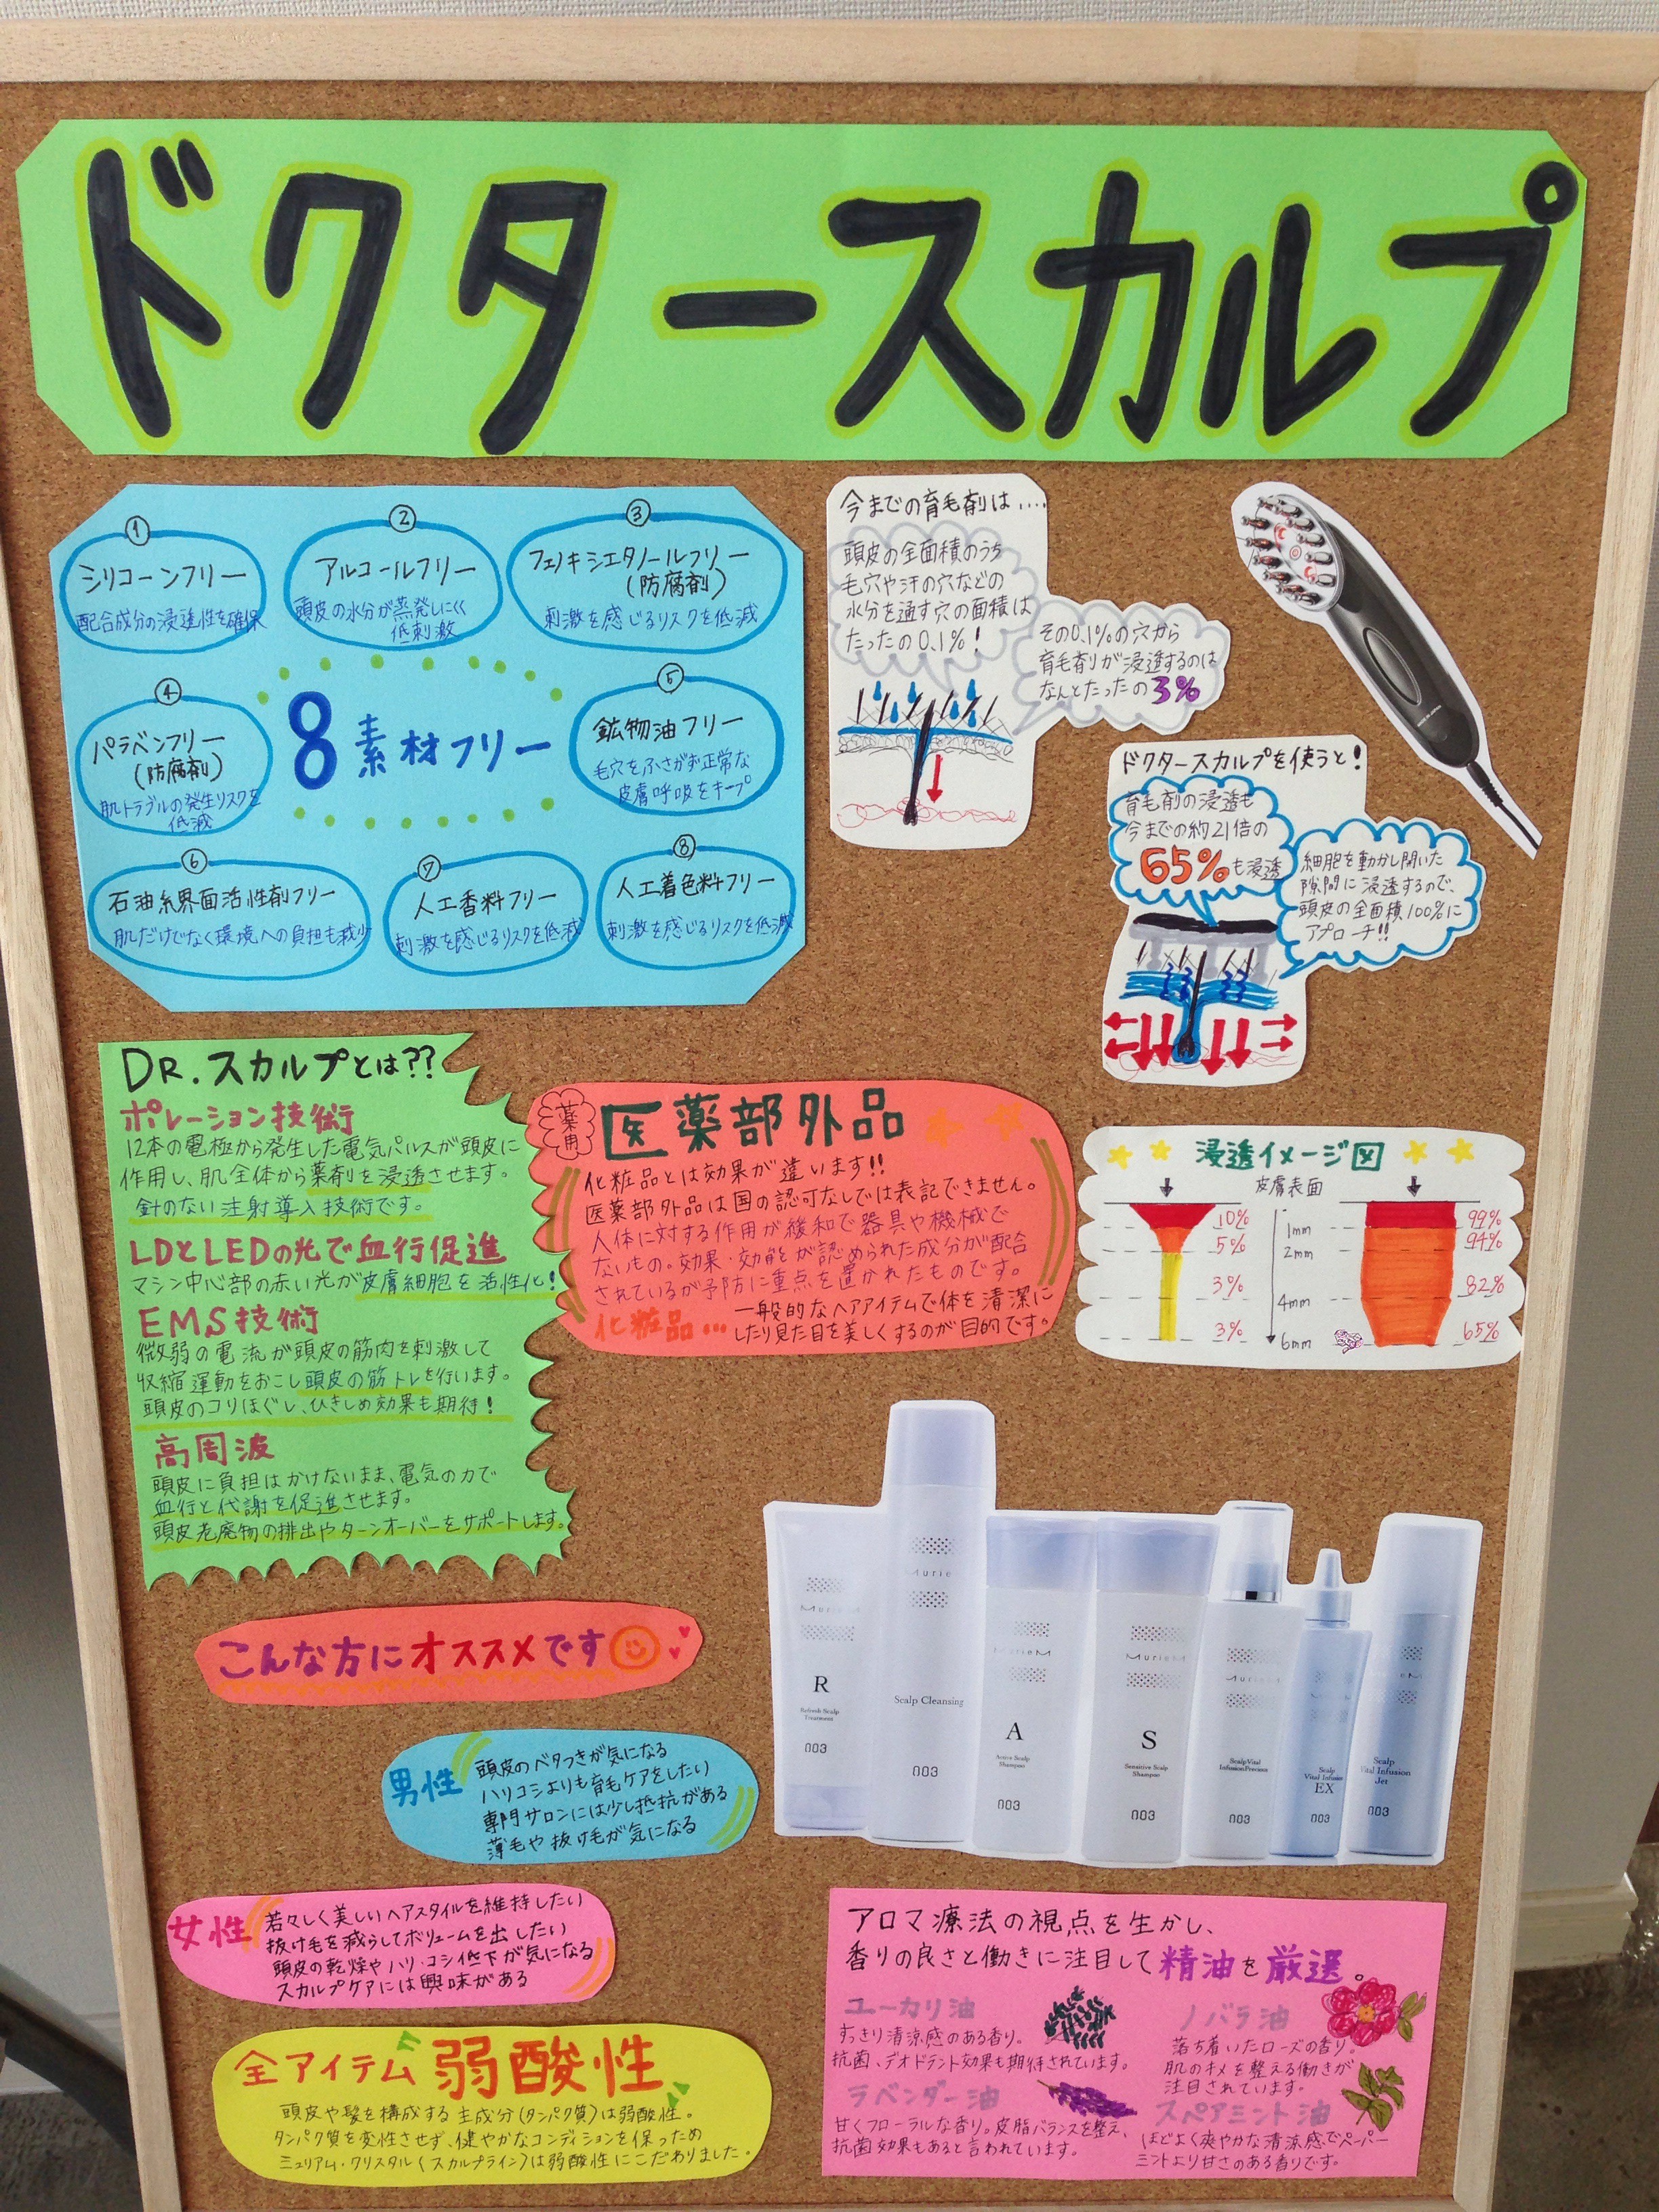 ドクタースカルプ
①
シリコーンフリー
配合成分の浸透性を確保
②
アルコールフリー
頭皮の水分が蒸発しにくく
低刺激
③
フェノキシエタノールフリー
(防腐剤)
刺激を感じるリスクを低減
④
パラベンフリー
(防腐剤)
肌トラブルの発生リスクを
低減
8素材フリー
⑤
鉱物油フリー
毛穴をふさがず正常な
皮膚呼吸をキープ
⑥
石油系界面活性剤フリー
肌だけでなく環境への負担も減少
⑦
人工香料フリー
刺激を感じるリスクを低減
⑧
人工着色料フリー
刺激を感じるリスクを低減
今までの育毛剤は....
頭皮の全面積のうち
毛穴や汗の穴などの
水分を通す穴の面積は
たったの0.1%!
その0.1%の穴から
育毛剤が浸透するのは
なんとたったの3%
MADE IN JAPAN
ドクタースカルプを使うと!
育毛剤の浸透も
今までの約21倍の
65%も浸透
細胞を動かし開いた
隙間に浸透するので、
頭皮の全面積100%に
アプローチ!!
DR.スカルプとは??
ポレーション技術
12本の電極から発生した電気パルスが頭皮に
作用し、肌全体から薬剤を浸透させます。
針のない注射導入技術です。
LDとLEDの光で血行促進
マシン中心部の赤い光が皮膚細胞を活性化!
EMS技術
微弱の電流が頭皮の筋肉を刺激して
収縮運動をおこし頭皮の筋トレを行います。
頭皮のコリほぐし、ひきしめ効果も期待!
高周波
頭皮に負担はかけないまま、電気の力で
血行と代謝を促進させます。
頭皮老廃物の排出やターンオーバーをサポートします。
薬用
医薬部外品
化粧品とは効果が違います!!
医薬部外品は国の認可なしでは表記できません。
人体に対する作用が緩和で器具や機械で
ないもの。効果・効能が認められた成分が配合
されているが予防に重点を置かれたものです。
化粧品…一般的なヘアアイテムで体を清潔に
したり見た目を美しくするのが目的です。
浸透イメージ図
皮膚表面
10%
5%
3%
3%
1mm
2mm
4mm
6mm
99%
94%
82%
65%
MurieM
R
Refresh Scalp
Treatment
003
Murie
Scalp Cleansing
003
MurieM
A
Active Scalp
Shampoo
003
MurieM
S
Sensitive Scalp
Shampoo
003
MurieM
Scalp Vital
Infusion Precious
003
Scalp
Vital Infusion
EX
003
Scalp
Vital Infusion
Jet
003
こんな方にオススメです
男性
頭皮のベタつきが気になる
ハリコシよりも育毛ケアをしたい
専門サロンには少し抵抗がある
薄毛や抜け毛が気になる
女性
若々しく美しいヘアスタイルを維持したい
抜け毛を減らしてボリュームを出したい
頭皮の乾燥やハリ・コシ低下が気になる
スカルプケアには興味がある
全アイテム弱酸性
頭皮や髪を構成する主成分(タンパク質)は弱酸性。
タンパク質を変性させず、健やかなコンディションを保つため
ミュリアム・クリスタル(スカルプライン)は弱酸性にこだわりました。
アロマ療法の視点を生かし、
香りの良さと働きに注目して精油を厳選。
ユーカリ油
すっきり清涼感のある香り。
抗菌、デオドラント効果も期待されています。
ノバラ油
落ち着いたローズの香り。
肌のキメを整える働きが
注目されています。
ラベンダー油
甘くフローラルな香り。皮脂バランスを整え、
抗菌効果もあると言われています。
スペアミント油
ほどよく爽やかな清涼感でペパー
ミントより甘さのある香りです。